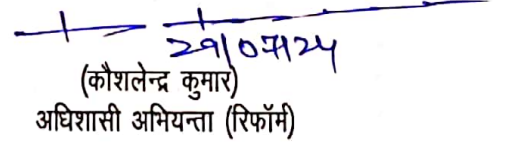 29/07/24
(कौशलेन्द्र कुमार)
अधिशासी अभियन्ता (रिफॉर्म)